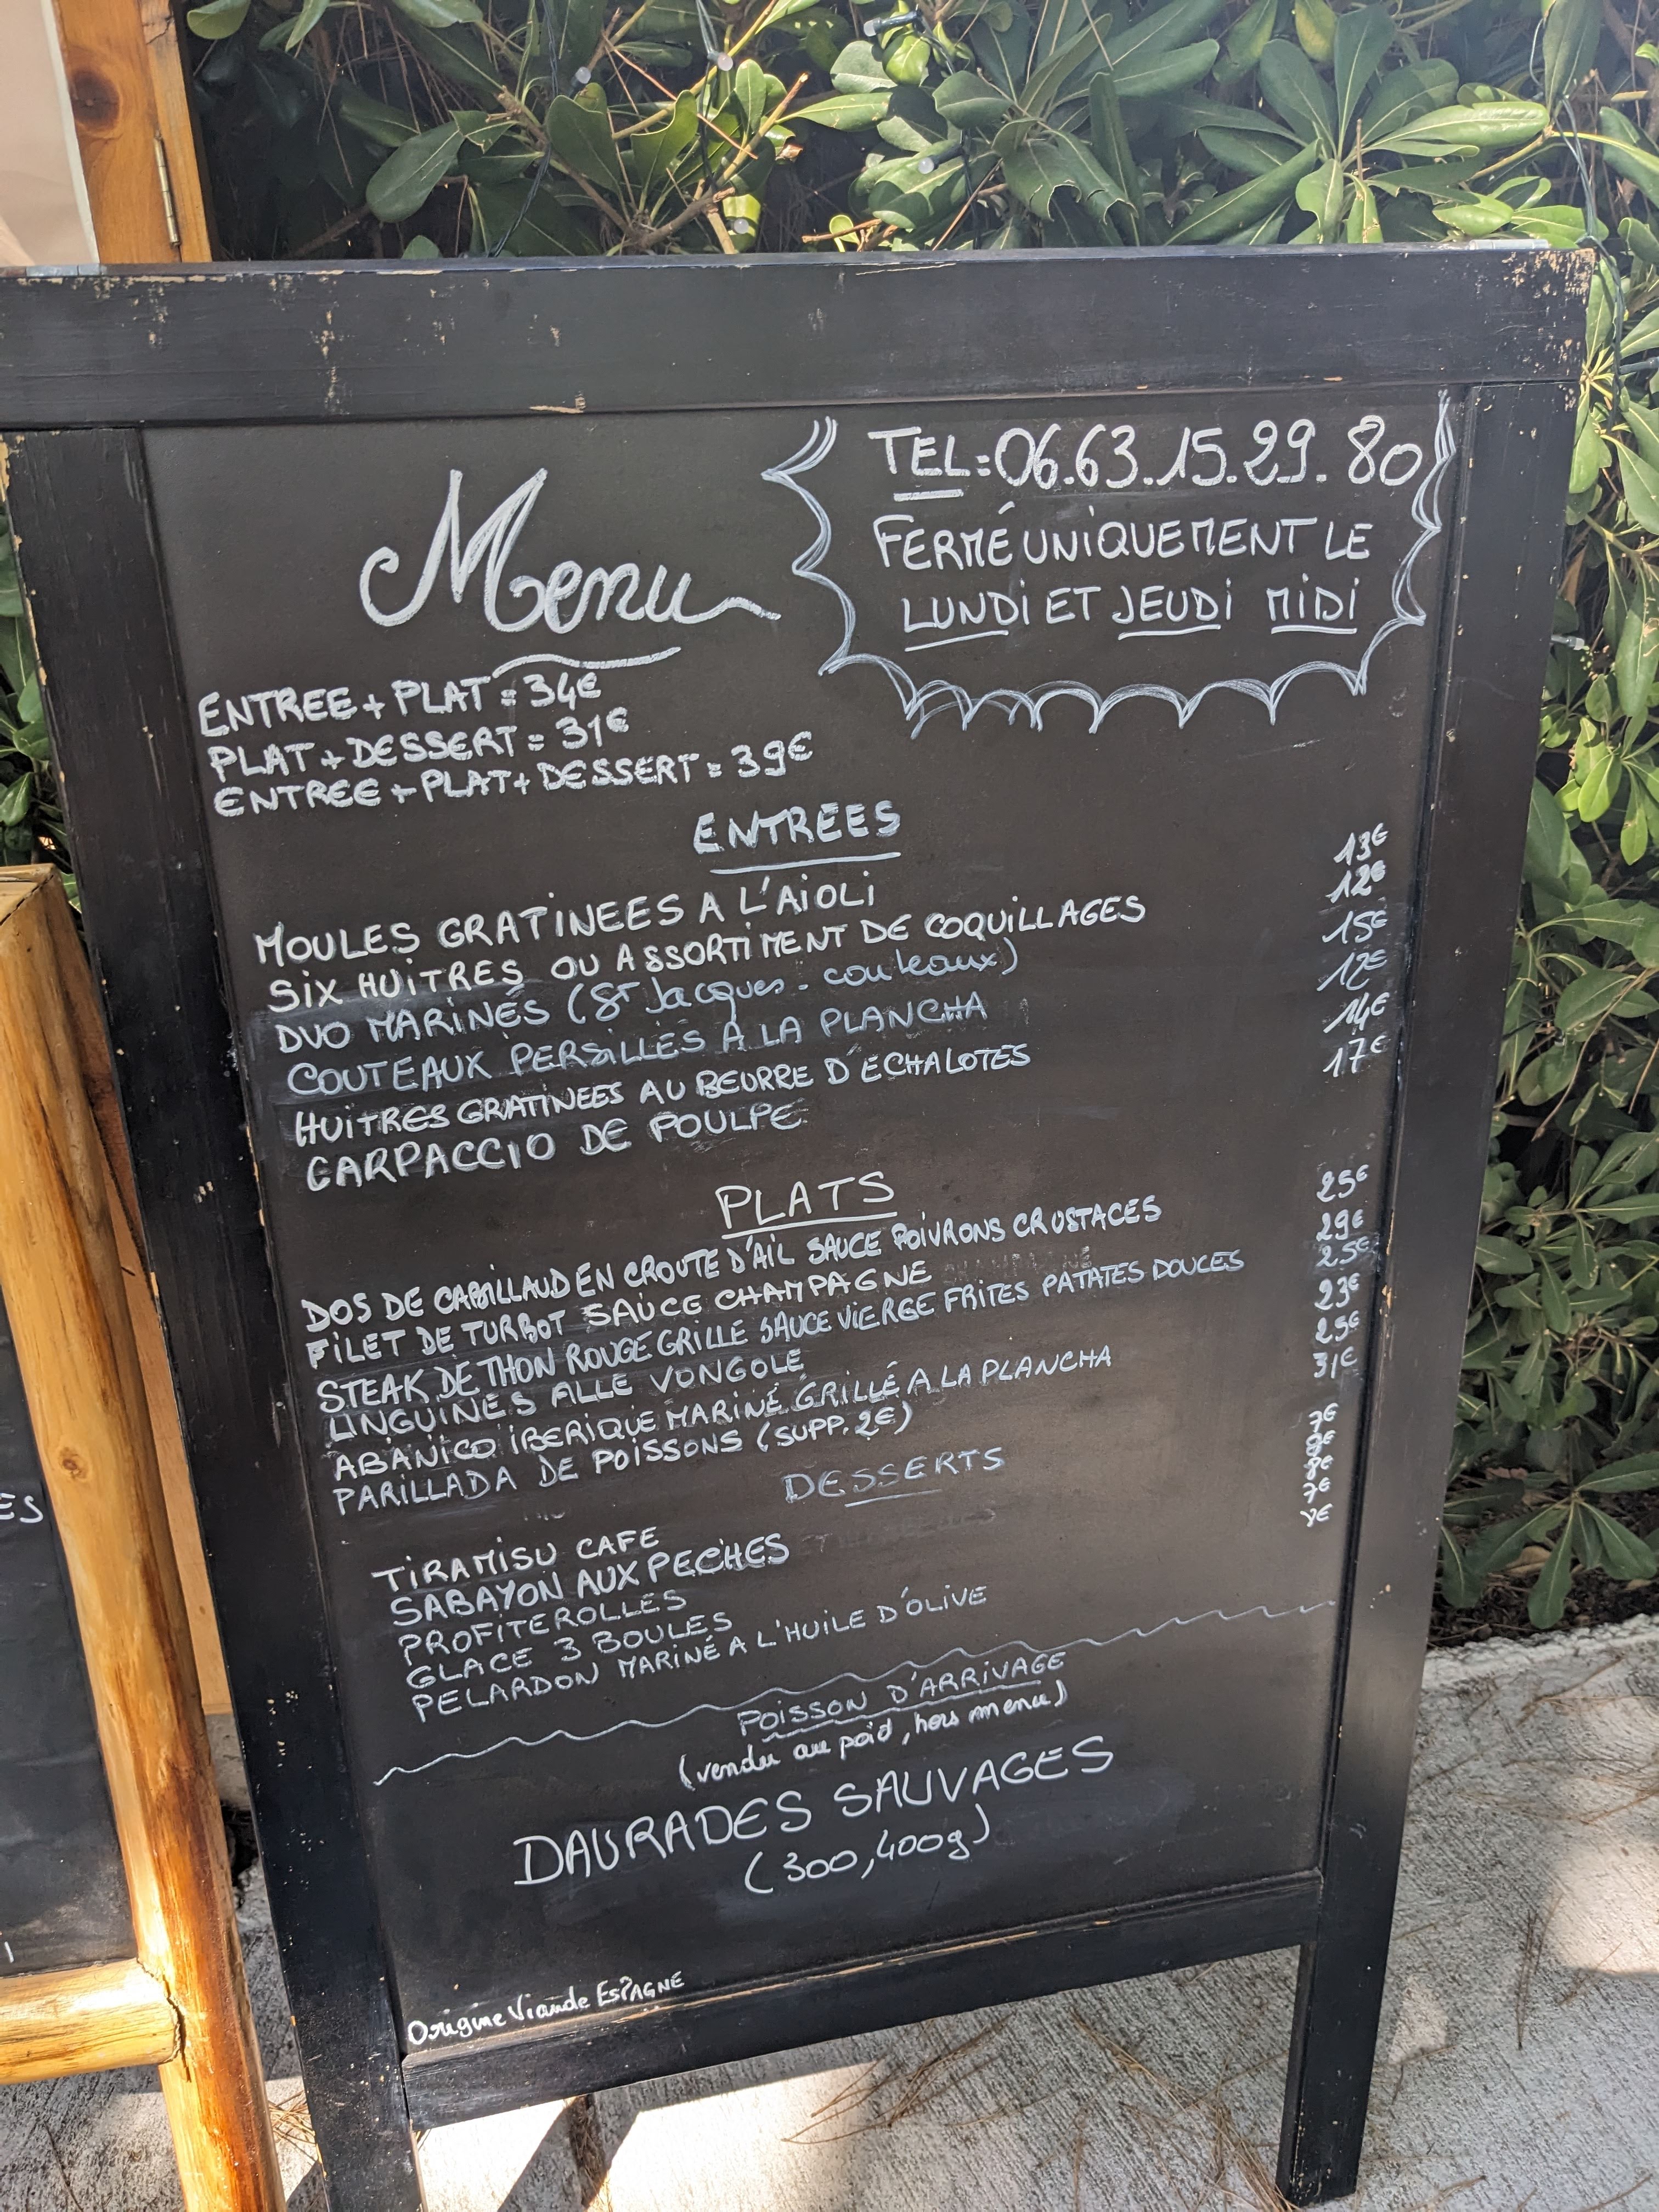 Menu
TEL=06.63.15.29.80
FERMÉ UNIQUEMENT LE
LUNDI ET JEUDI MIDI
ENTREE + PLAT = 34€
PLAT + DESSERT = 31€
ENTREE + PLAT + DESSERT = 39€
ENTREES
MOULES GRATINEES A L'AIOLI 13€
SIX HUITRES OU ASSORTIMENT DE COQUILLAGES 12€
DUO MARINÉS (St Jacques - couteaux) 15€
COUTEAUX PERSILLÉS A LA PLANCHA 12€
HUITRES GRATINEES AU BEURRE D'ECHALOTES 14€
CARPACCIO DE POULPE 17€
PLATS
DOS DE CABILLAUD EN CROUTE D'AIL SAUCE POIVRONS CRUSTACES 25€
FILET DE TURBOT SAUCE CHAMPAGNE 29€
STEAK DE THON ROUGE GRILLE SAUCE VIERGE FRITES PATATES DOUCES 25€
LINGUINES ALLE VONGOLE 23€
ABANICO IBERIQUE MARINÉ GRILLÉ A LA PLANCHA 25€
PARILLADA DE POISSONS (SUPP. 2€) 31€
DESSERTS
TIRAMISU CAFE 7€
SABAYON AUX PECHES 9€
PROFITEROLLES 8€
GLACE 3 BOULES 7€
PELARDON MARINÉ A L'HUILE D'OLIVE 8€
POISSON D'ARRIVAGE
(vendu au poid, hors menu)
DAURADES SAUVAGES
(300,400g)
Origine Viande ESPAGNE
ES